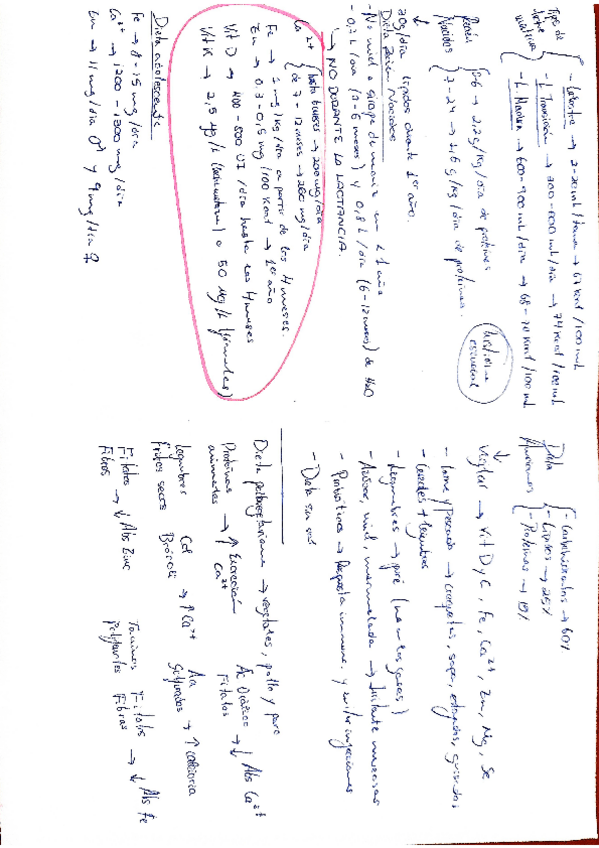 Tipo de leche materna
- Calostro → 2-20 ml/toma → 67 kcal/100 mL
- L. Transición → 200-600 ml/día → 74 kcal/100 mL
- L. Madura → 600-900 mL/día → 68-70 kcal/100 mL
Recién Nacidos
0-6 → 2,2 g/kg/día de proteínas
7-24 → 1,6 g/kg/día de proteínas.
30g/día lípidos durante 1er año.
Dieta Recién Nacidos
- No miel o sirope de maíz en < 1 año
- 0,7 L/día (0-6 meses) y 0,8 L/día (6-12 meses) de H2O
↳ NO DURANTE LA LACTANCIA.
Ca2+
hasta 6 meses → 200 mg/día
de 7-12 meses → 260 mg/día
Fe → 1 mg/kg/día a partir de los 4 meses.
Zn → 0,3-0,5 mg/100 kcal → 1er año
Vit D → 400-800 UI/día hasta los 4 meses
Vit K → 2,5 µg/L (leche materna) o 50 µg/L (fórmulas)
Dieta adolescente
Fe → 8-15 mg/día
Ca2+ → 1200-1300 mg/día
Zn → 11 mg/día ♂ y 9 mg/día ♀
Dieta
- Carbohidratos → 60%
- Lípidos → 25%
- Proteínas → 15%
Vigilar → Vit D y C, Fe, Ca2+, Zn, Mg, Se
- Carne y Pescado → croquetas, sopa, estofados, guisados
- Cereales + legumbres
- Legumbres → puré (menos gases)
- Azúcar, miel, mermelada →
- Probióticos → Respuesta inmune y evitar infecciones
- Dieta sin sal
Dieta → vegetales, pollo y pavo
Proteínas animales → ↑ Excreción Ca2+
Ac Oxálico Fitatos → ↓ Abs Ca2+
Legumbres Frutos secos
Col Brócoli → ↑ Ca2+
Fitatos Fibras → ↓ Abs Zinc
Taninos Polifenoles Fitatos Fibras → ↓ Abs Fe